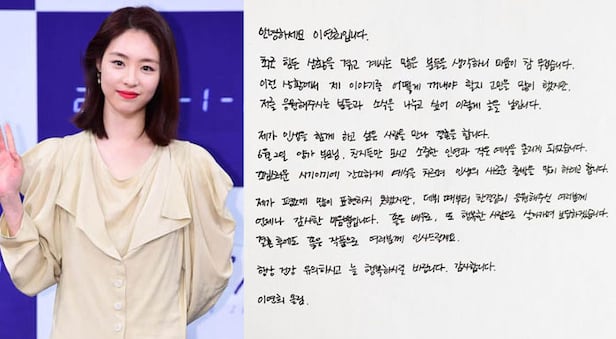 안녕하세요 이연희입니다.
최근 힘든 상황을 겪고 계시는 많은 분들을 생각하니 마음이 참 무겁습니다.
이런 상황에서 제 이야기를 어떻게 꺼내야 할지 고민을 많이 했지만,
저를 응원해주시는 분들과 소식을 나누고 싶어 이렇게 글을 남깁니다.
제가 인생을 함께 하고 싶은 사람을 만나 결혼을 합니다.
6월 2일, 양가 부모님, 친지들만 모시고 소중한 인연과 작은 예식을 올리게 되었습니다.
조심스러운 시기이기에 간소하게 예식을 치르며 인생의 새로운 출발을 맞이하려고 합니다.
제가 평소에 많이 표현하지 못했지만, 데뷔 때부터 한결같이 응원해주신 여러분께
언제나 감사한 마음뿐입니다. 좋은 배우로, 또 행복한 사람으로 살아가며 보답하겠습니다.
결혼 후에도 좋은 작품으로 여러분께 인사드릴게요.
항상 건강 유의하시고 늘 행복하시길 바랍니다. 감사합니다.
이연희 올림.